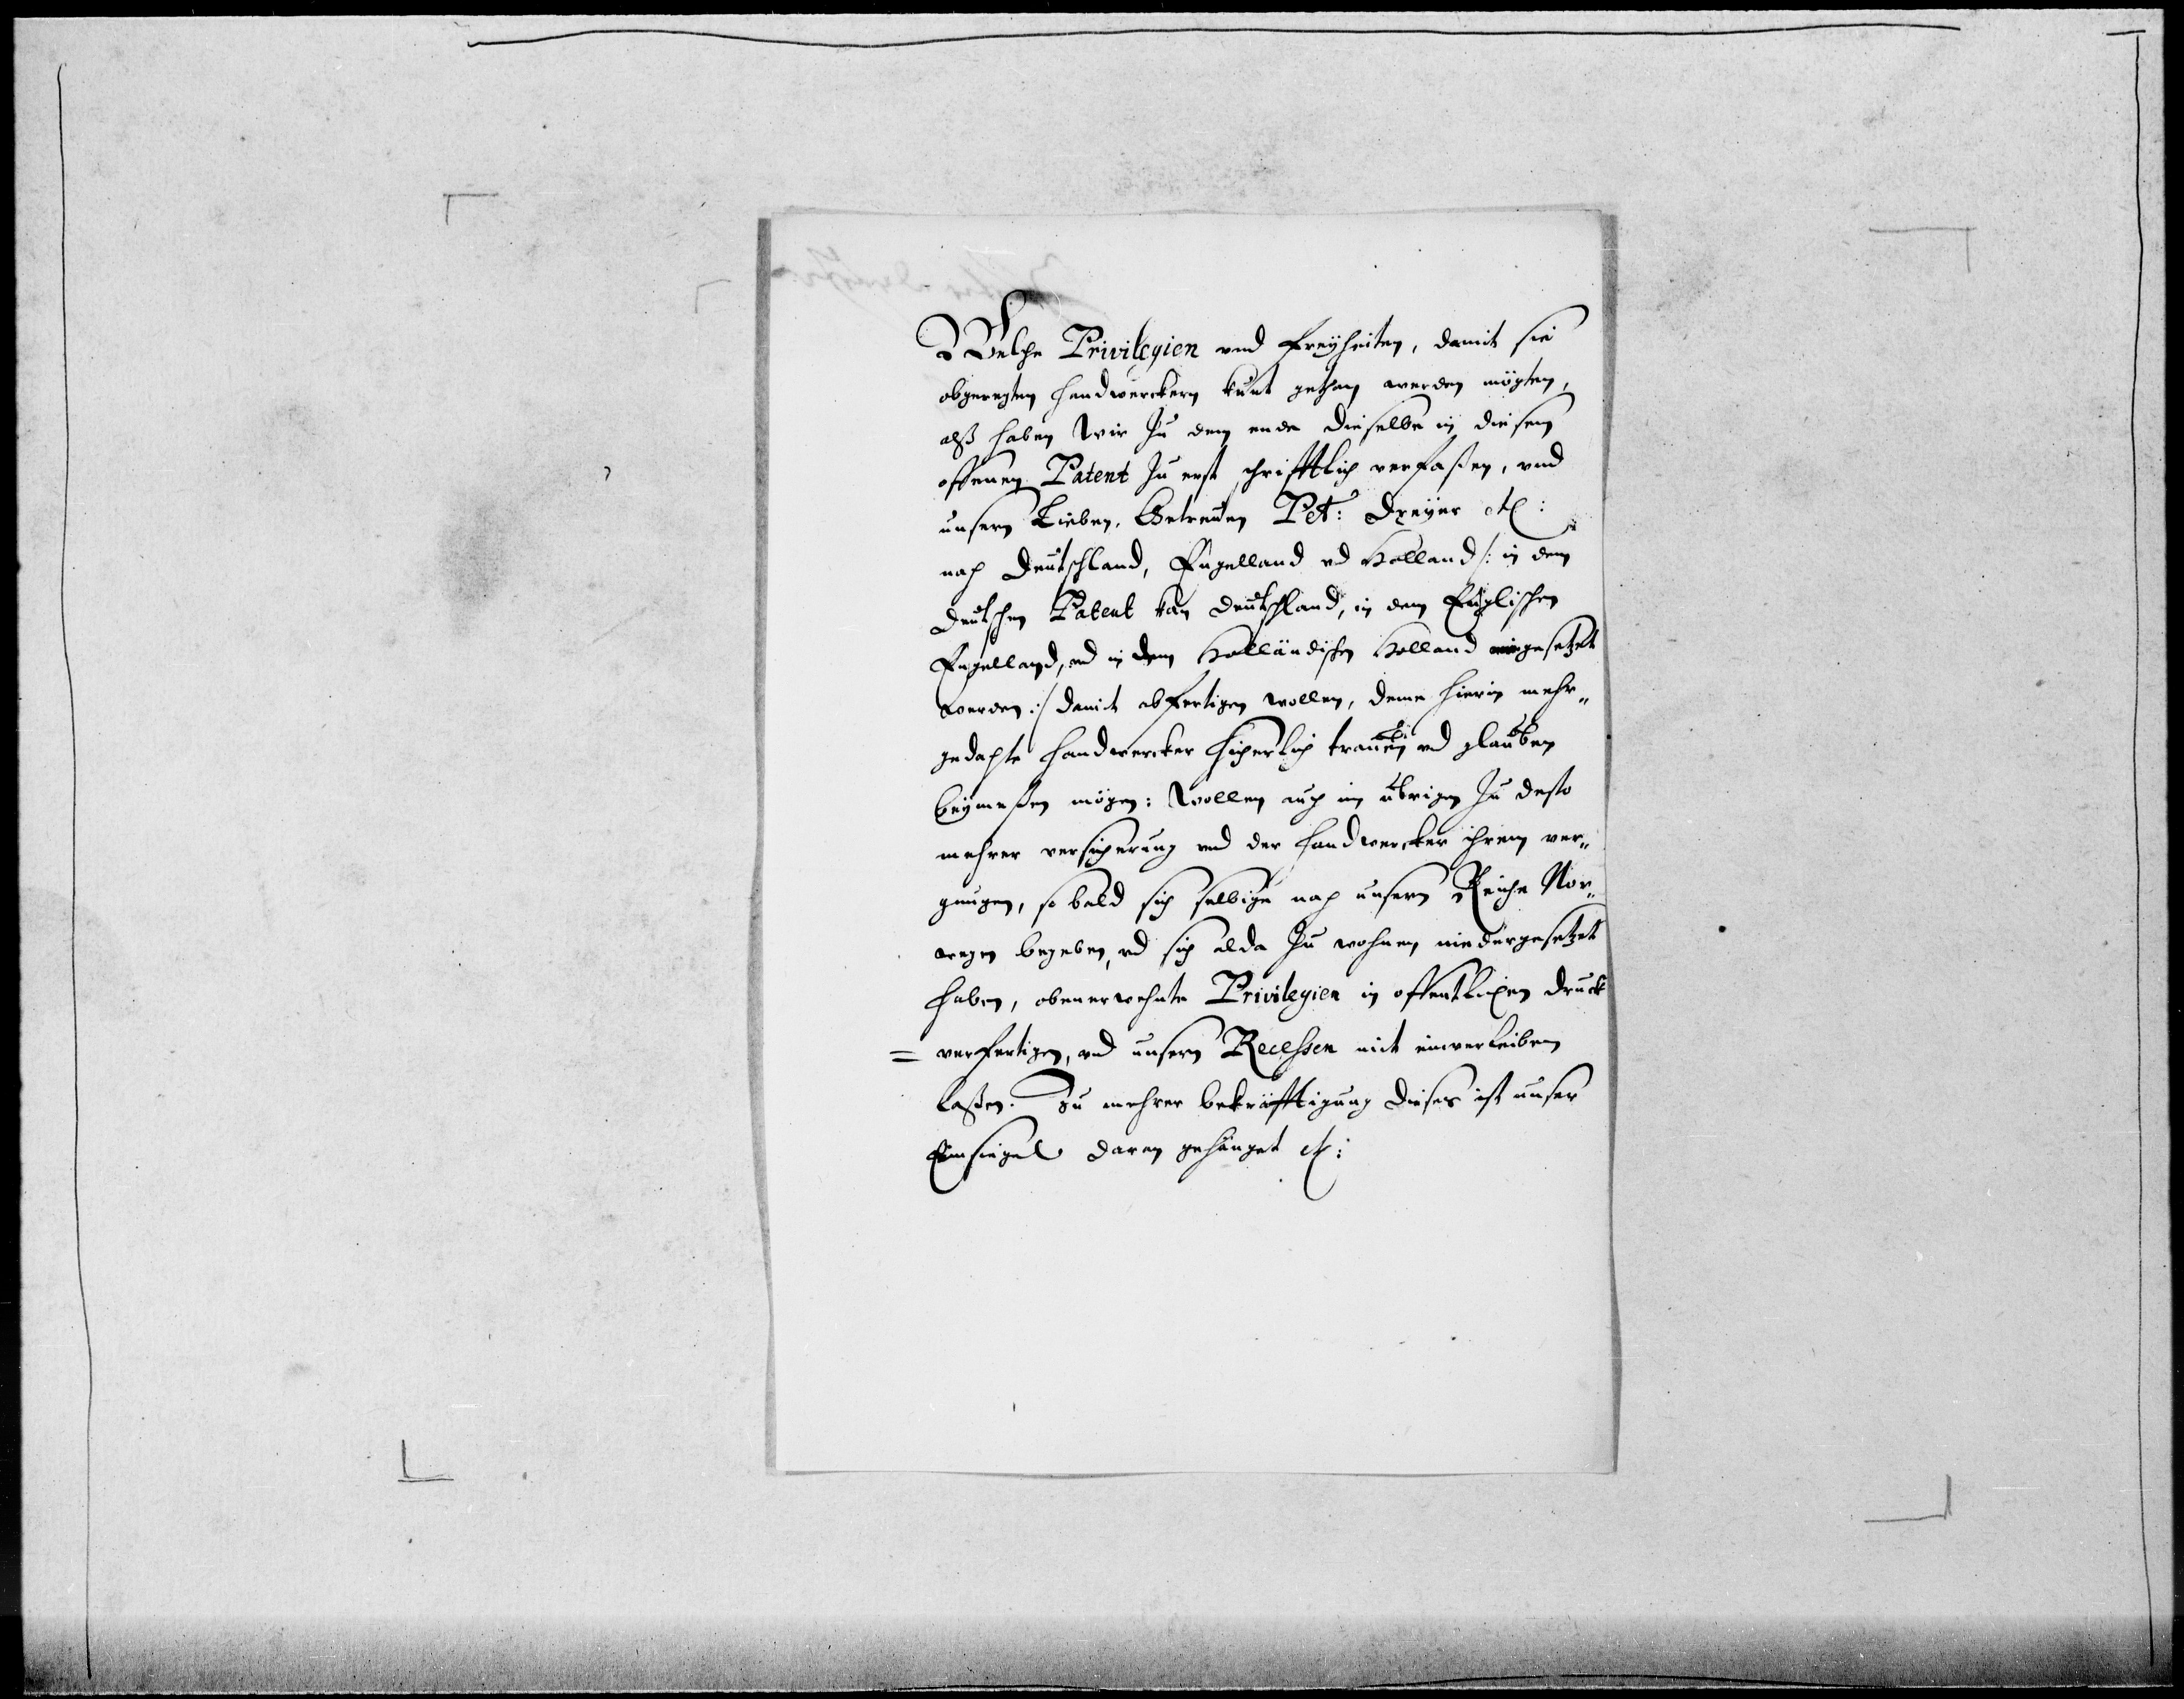 Welche Privilegien und Freyheiten, damit sie
obgeregten handwerckern kunt gethan werden mögten,
alß haben Wir zu dem ende dieselbe in diesem
offenen Patent zu erst schrifftlich verfaßen, und
unsern Lieben, Getreuen Pet: Dreyer etc:
nach Deutschland, Engelland vd Holland /: in dem
Deutschen Patent kan Deutschland, in dem Englischen
Engelland, vd in dem Holländischen Holland eingesetzet
werden :/ damit abfertigen wollen, deme hierin mehr„
gedachte handwercker sicherlich trauen vd glauben
beymeßen mögen: Wollen auch im übrigen zu desto
mehrer versicherung vnd der handwercker ihrem ver„
gnugen, so bald sich selbige nach unserm Reiche Nor„
wegen begeben, vd sich alda zu wohnen niedergesetzet
haben, obenerwehnte Privilegien in offentlichen druck
= verfertigen, vnd unsern Recessen mit einverleiben
laßen. Zu mehrer bekräfftigung dieses ist unser
Einsiegel daran gehänget etc: